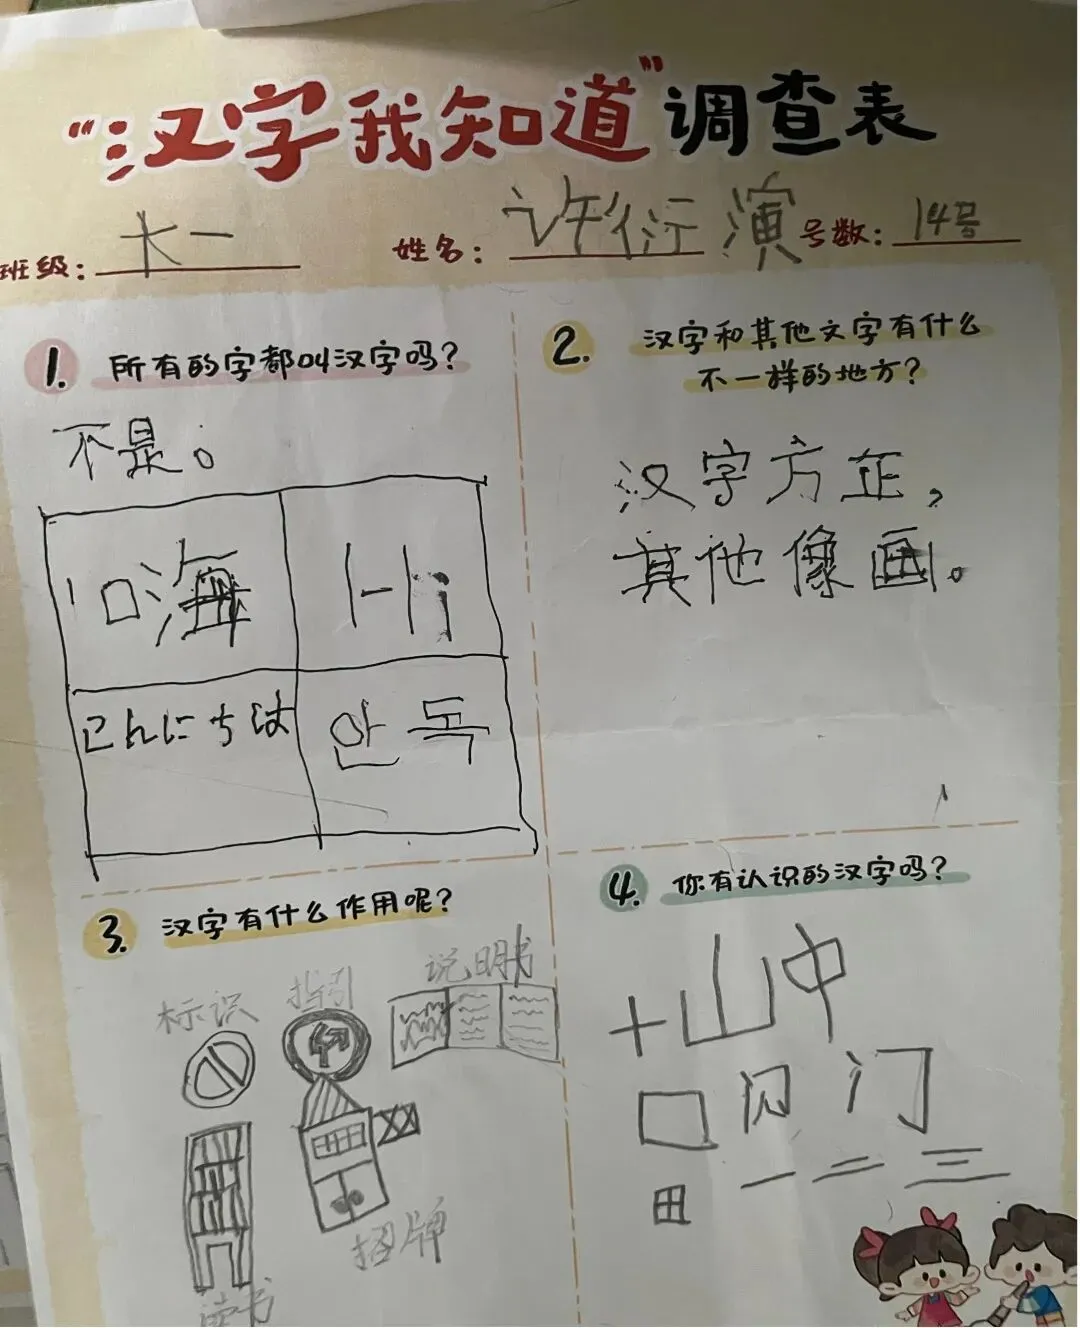 “汉字我知道”调查表
班级：大一 姓名：许衍演 号数：14号
1. 所有的字都叫汉字吗？
不是。
口海 Hi
こんにちは 안독
2. 汉字和其他文字有什么
不一样的地方？
汉字方正，
其他像画。
3. 汉字有什么作用呢？
标识 指引 说明书
招牌
读书
4. 你有认识的汉字吗？
十山中
口闪门
田一二三